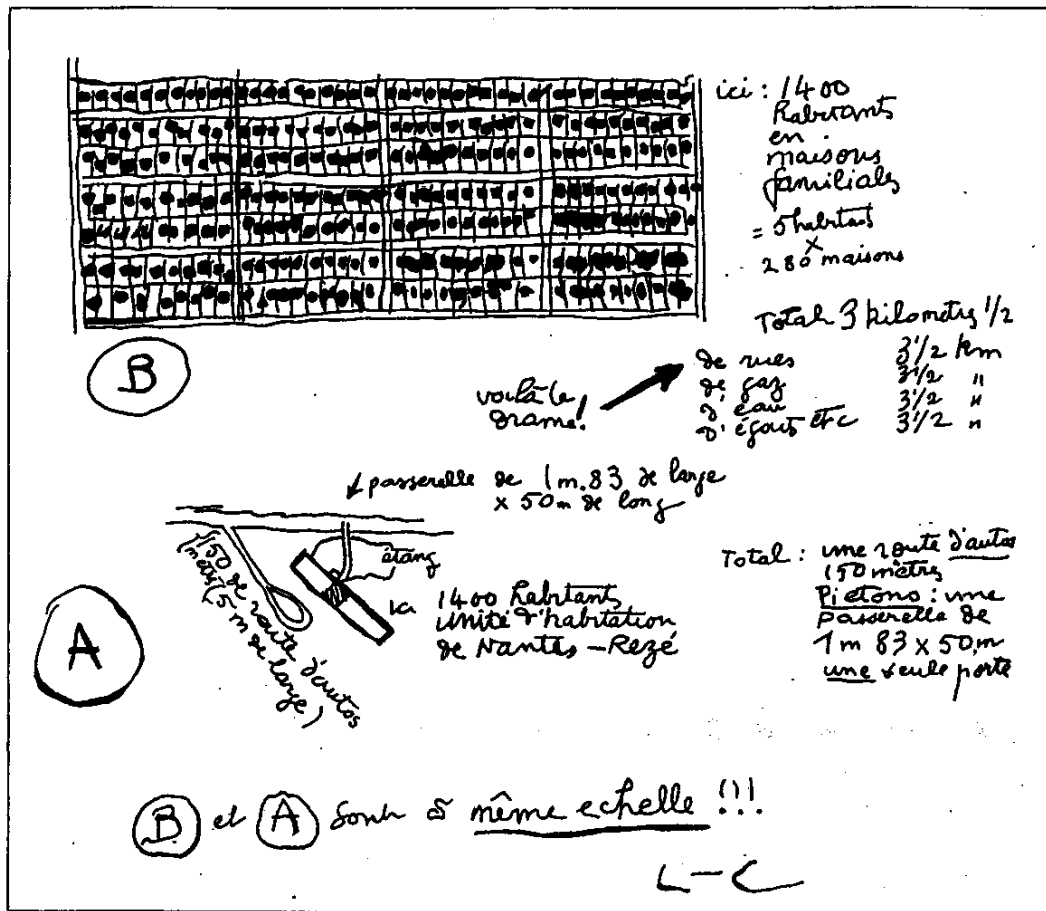 ici : 1400
habitants
en
maisons
familiales
= 5 habitants
x
280 maisons
Total 3 kilomètres 1/2
de rues 3 1/2 km
de gaz 3 1/2 "
d'eau 3 1/2 "
d'égouts etc 3 1/2 "
voilà le
drame!
B
passerelle de 1 m.83 de large
x 50 m de long
étang
150 mètres de route d'autos
(5 m de large)
ici 1400 habitants
Unité d'habitation
de Nantes-Rezé
A
Total : une route d'autos
150 mètres
Piétons : une
passerelle de
1 m 83 x 50 m
une seule porte
B et A sont à même echelle !!!
L-C